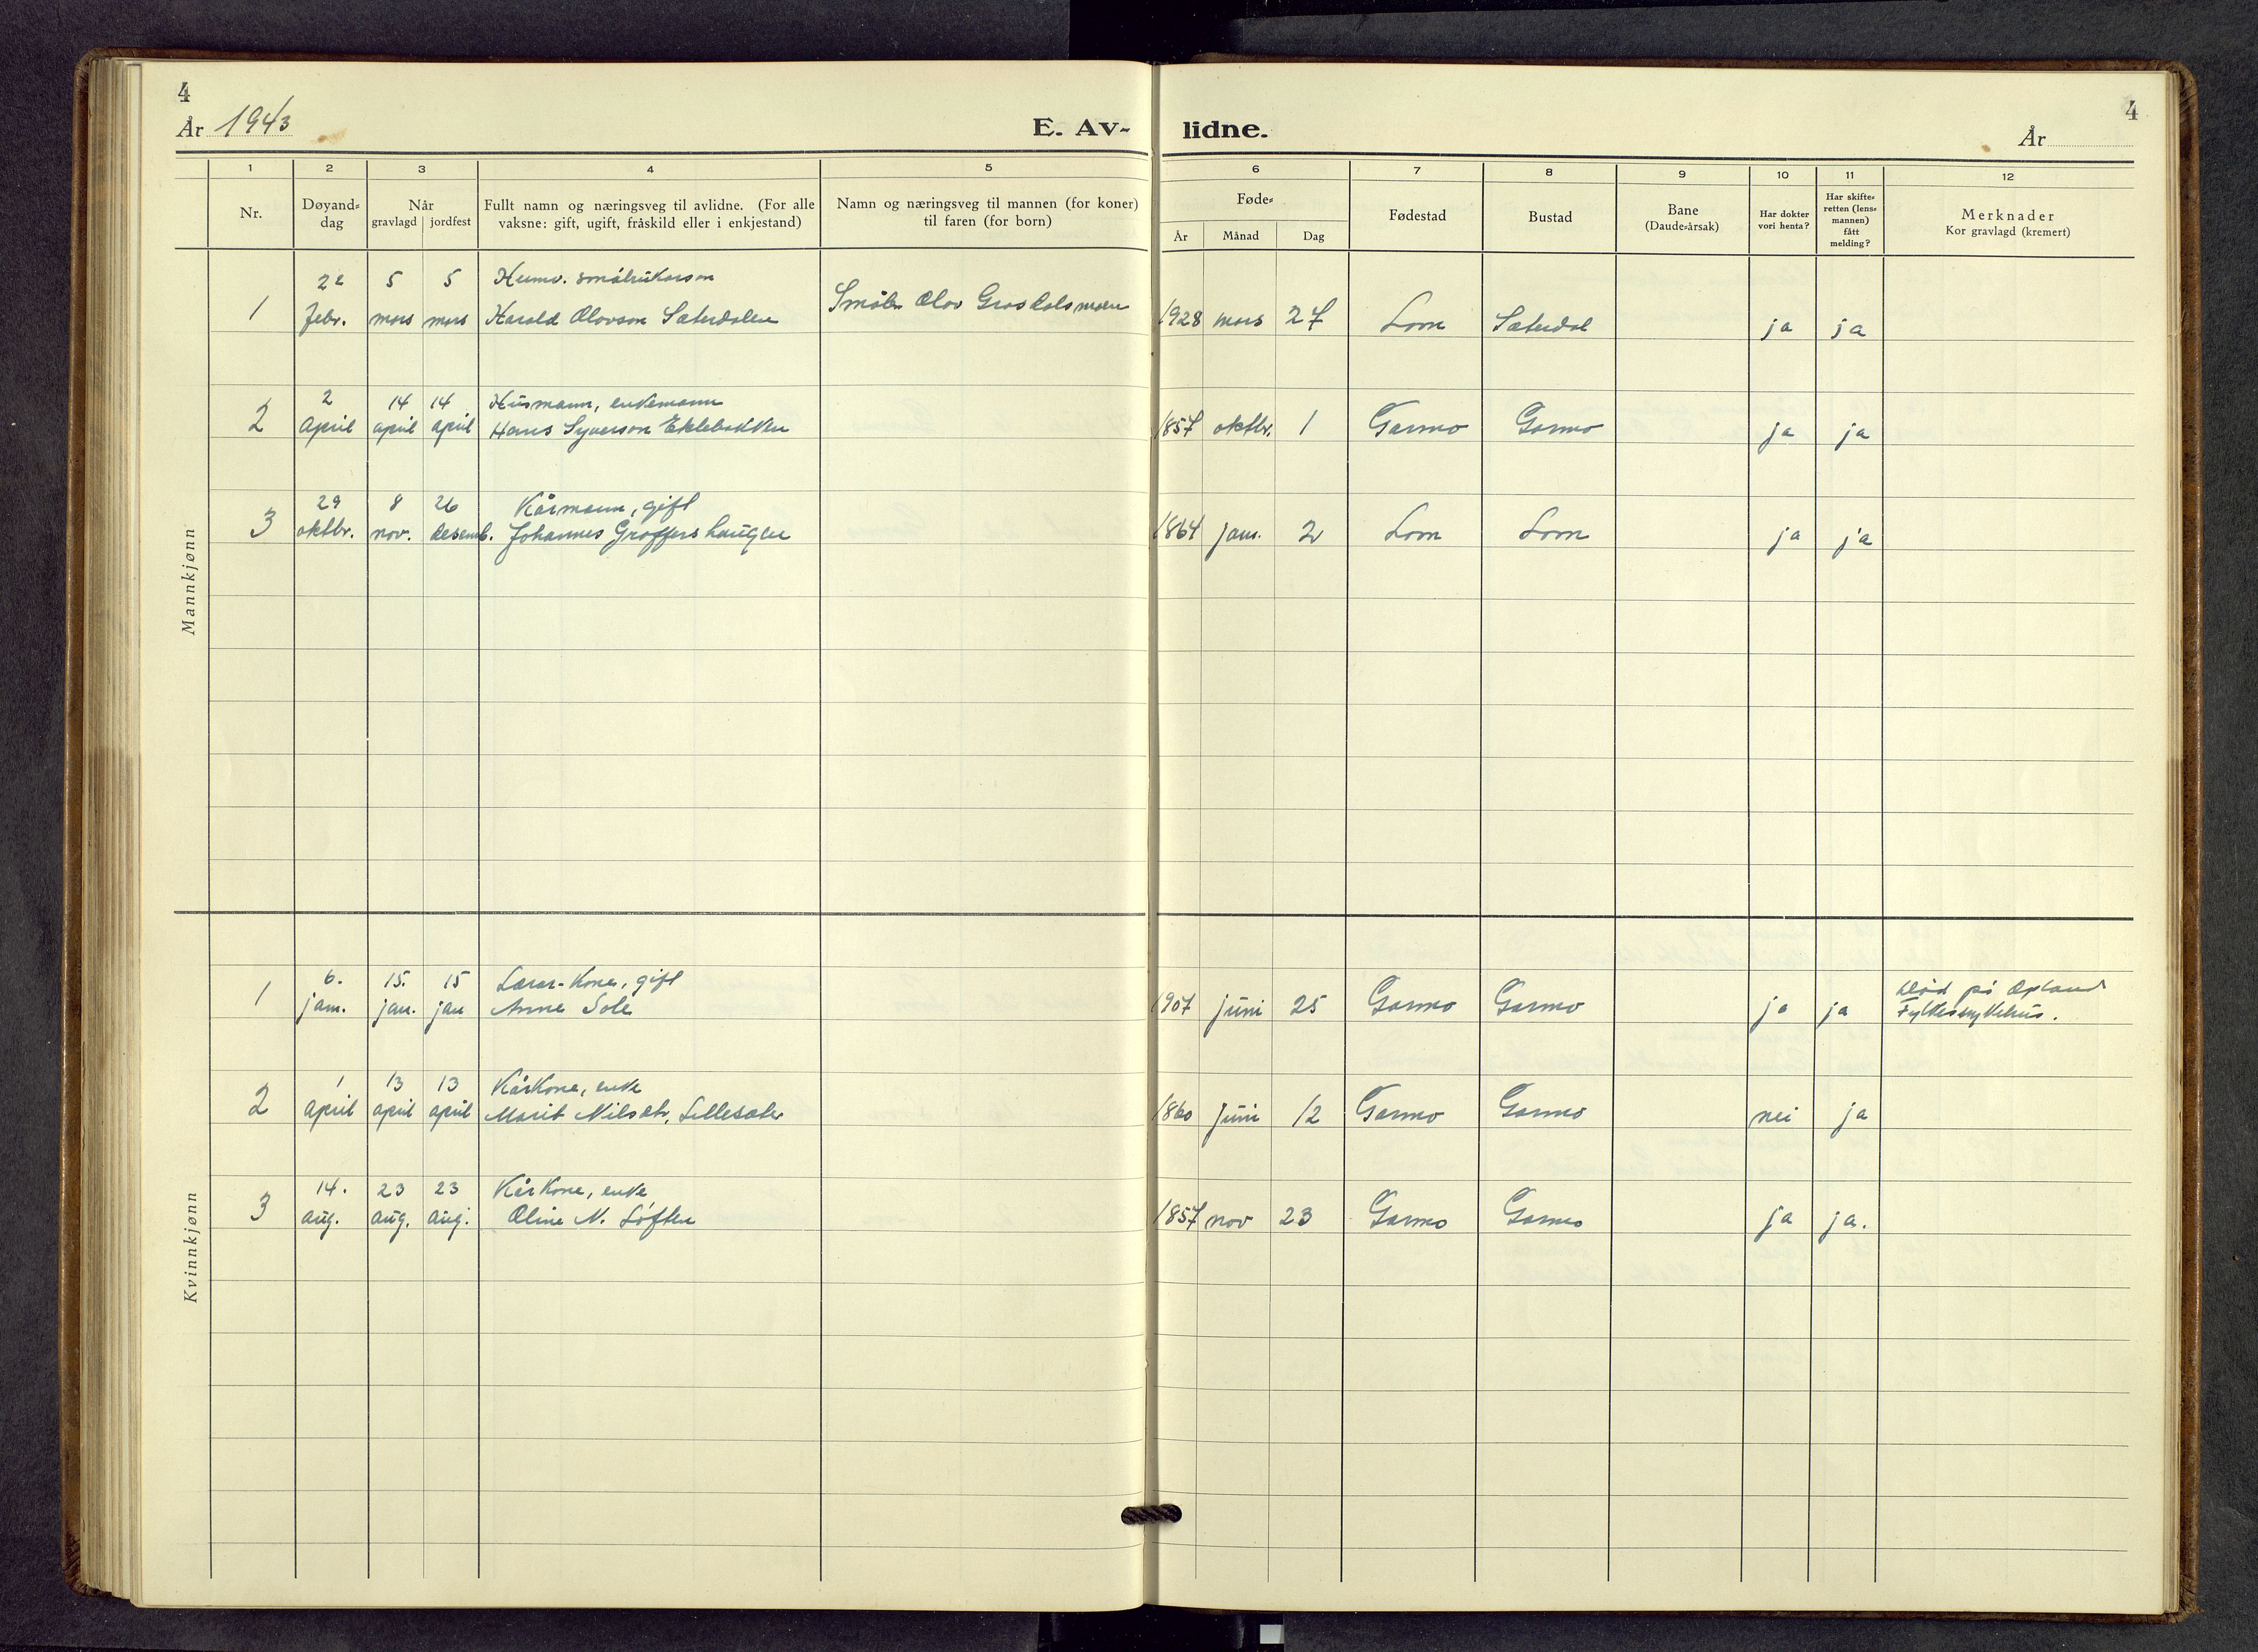 4
År 1943
E. Av-
1 2 3 4 5
Nr.
Døyand-
dag
Når
gravlagd jordfest
Fullt namn og næringsveg til avlidne. (For alle
vaksne: gift, ugift, fråskild eller i enkjestand)
Namn og næringsveg til mannen (for koner)
til faren (for born)
Mannkjønn
22 5 5
1 febr. mars mars Harald Olovson Sæterdalen
Småbr. Olov Grosdalsmoen
2 14 14 Husmann, enkemann
2 April april april Hans Syverson Eklebakken
29 8 26 Kårmann, gift
3 oktbr. nov. desemb. Johannes Graffershaugen
Kvinnkjønn
6. 15. 15 Lærar-kone, gift
1 jan. jan. jan Anne Sole
1 13 13 Kårkone, enke
2 april april april Marit Nilsdtr. Lillesæter
14. 23 23 Kårkone, enke
3 aug. aug. aug. Oline N. Løften
4
lidne.
År
6 7 8 9 10 11 12
Føde-
År Månad Dag
Fødestad
Bustad
Bane
(Daude-årsak)
Har dokter
vori henta?
Har skifte-
retten (lens-
mannen)
fått
melding?
Merknader
Kor gravlagd (kremert)
1928 mars 27 Lom Sæterdal ja ja
1857 oktbr. 1 Garmo Garmo ja ja
1864 jan. 2 Lom Lom ja ja
1907 juni 25 Garmo Garmo ja ja
Død på Opland
Fylkessykehus.
1860 juni 12 Garmo Garmo nei ja
1857 nov 23 Garmo Garmo ja ja.